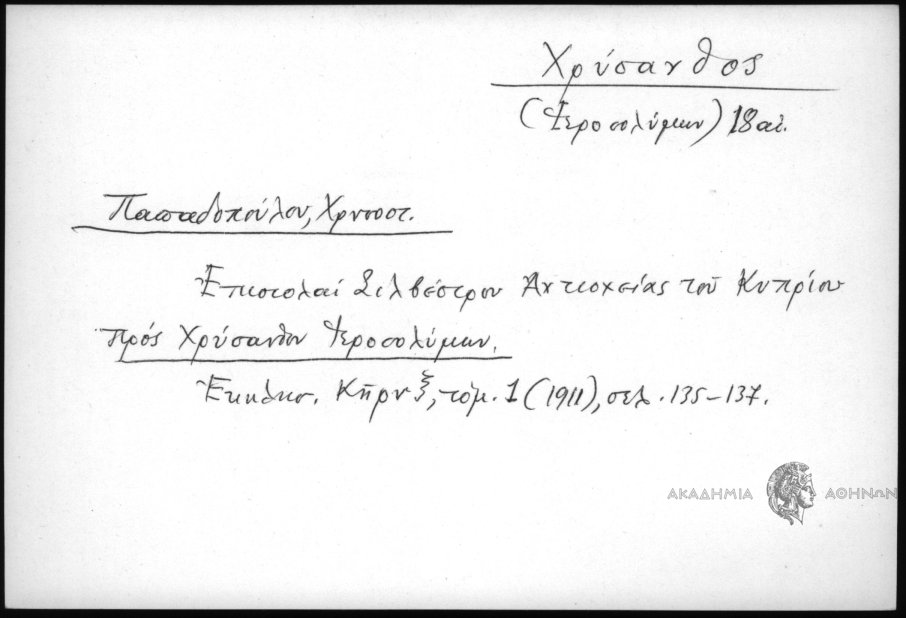 Χρύσανθος
(Ἱεροσολύμων) 18 αἰ.
Παπαδοπούλου, Χρυσοστ.
Ἐπιστολαί Σιλβέστρου Ἀντιοχείας τοῦ Κυπρίου
πρός Χρύσανθον Ἱεροσολύμων.
Ἐκκλησ. Κῆρυξ, τόμ. 1 (1911), σελ. 135-137.
ΑΚΑΔΗΜΙΑ ΑΘΗΝΩΝ